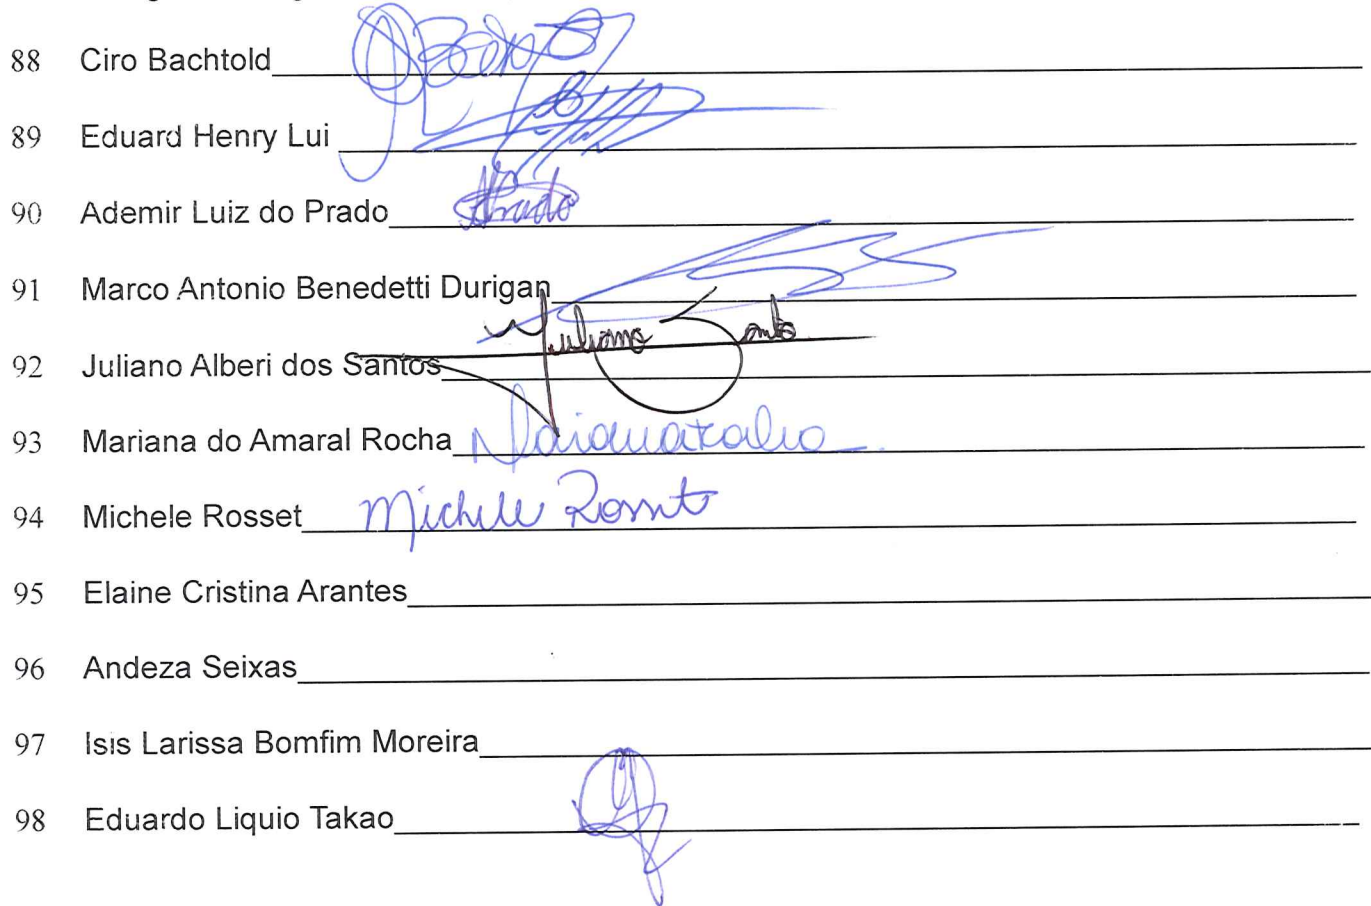 88 Ciro Bachtold
89 Eduard Henry Lui
90 Ademir Luiz do Prado Prado
91 Marco Antonio Benedetti Durigan
92 Juliano Alberi dos Santos Juliano Santos
93 Mariana do Amaral Rocha
94 Michele Rosset Michele Rosset
95 Elaine Cristina Arantes
96 Andeza Seixas
97 Isis Larissa Bomfim Moreira
98 Eduardo Liquio Takao